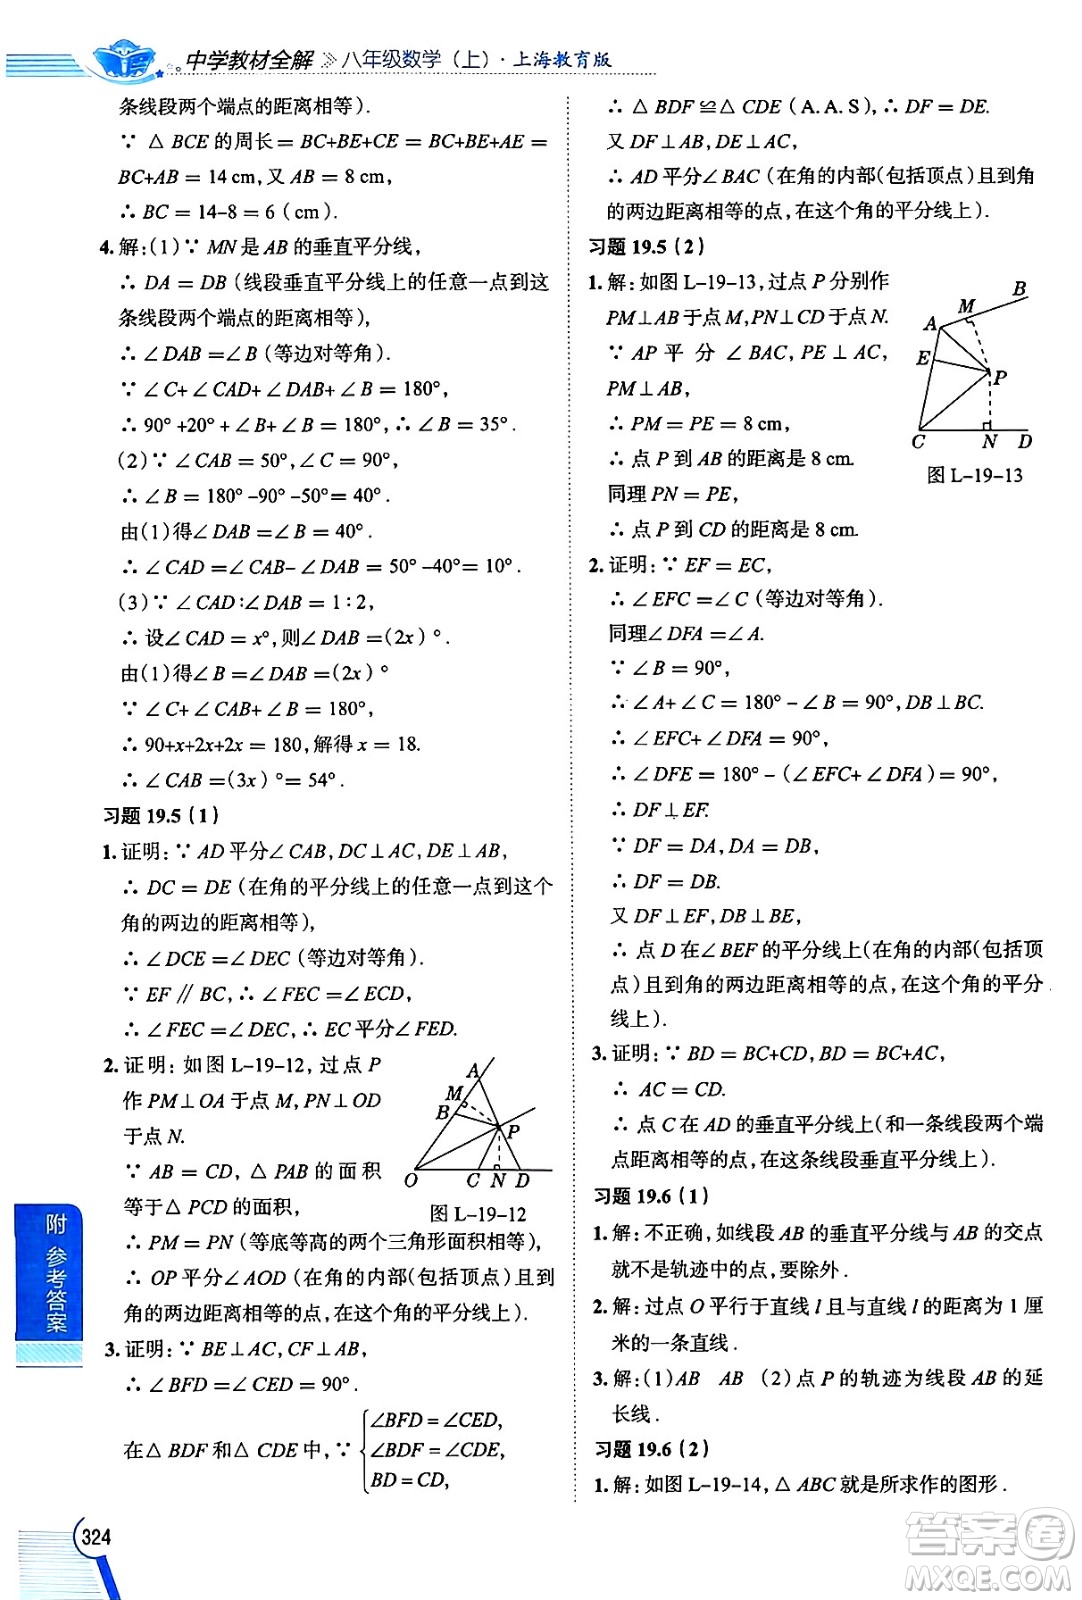 中学教材全解 》八年级数学（上）·上海教育版
条线段两个端点的距离相等).
∵ △BCE 的周长 = BC+BE+CE = BC+BE+AE =
BC+AB = 14 cm,又 AB = 8 cm,
∴ BC = 14-8 = 6 (cm).
4. 解:(1)∵ MN 是 AB 的垂直平分线,
∴ DA = DB (线段垂直平分线上的任意一点到这
条线段两个端点的距离相等),
∴ ∠DAB =∠B (等边对等角).
∵ ∠C+∠CAD+∠DAB+∠B = 180°,
∴ 90° +20° +∠B+∠B = 180°,∴ ∠B = 35°.
(2)∵ ∠CAB = 50°,∠C = 90°,
∴ ∠B = 180° -90° -50°= 40°.
由(1)得∠DAB =∠B = 40°.
∴ ∠CAD =∠CAB-∠DAB = 50° -40°= 10°.
(3)∵ ∠CAD∶∠DAB = 1∶2,
∴ 设∠CAD = x°,则∠DAB =(2x) °.
由(1)得∠B =∠DAB =(2x) °
∵ ∠C+∠CAB+∠B = 180°,
∴ 90+x+2x+2x = 180,解得 x = 18.
∴ ∠CAB =(3x) °= 54°.
习题 19.5 (1)
1. 证明:∵ AD 平分∠CAB,DC⊥AC,DE⊥AB,
∴ DC = DE (在角的平分线上的任意一点到这个
角的两边的距离相等),
∴ ∠DCE =∠DEC (等边对等角).
∵ EF∥BC,∴ ∠FEC =∠ECD,
∴ ∠FEC =∠DEC,∴ EC 平分∠FED.
2. 证明: 如图 L-19-12, 过点 P
作 PM⊥OA 于点 M,PN⊥OD
于点 N.
∵ AB = CD, △PAB 的面积
等于△PCD 的面积,
A
M
B
P
O
C
N
D
图 L-19-12
∴ PM = PN (等底等高的两个三角形面积相等),
∴ OP 平分∠AOD (在角的内部(包括顶点)且到
角的两边距离相等的点,在这个角的平分线上).
3. 证明:∵ BE⊥AC,CF⊥AB,
∴ ∠BFD =∠CED = 90°.
在△BDF 和△CDE 中,∵
∠BFD =∠CED,
∠BDF =∠CDE,
BD = CD,
∴ △BDF ≌△CDE (A. A. S),∴ DF = DE.
又 DF⊥AB,DE⊥AC,
∴ AD 平分∠BAC (在角的内部(包括顶点)且到角
的两边距离相等的点,在这个角的平分线上).
习题 19.5 (2)
1. 解: 如图 L-19-13,过点 P 分别作
PM⊥AB 于点 M,PN⊥CD 于点 N.
∵ AP 平 分 ∠BAC, PE⊥AC,
PM⊥AB,
∴ PM = PE = 8 cm,
∴ 点 P 到 AB 的距离是 8 cm.
同理 PN = PE,
∴ 点 P 到 CD 的距离是 8 cm.
B
M
A
E
P
C
N
D
图 L-19-13
2. 证明:∵ EF = EC,
∴ ∠EFC =∠C (等边对等角).
同理∠DFA =∠A.
∵ ∠B = 90°,
∴ ∠A+∠C = 180° -∠B = 90°,DB⊥BC.
∴ ∠EFC+∠DFA = 90°,
∴ ∠DFE = 180° -(∠EFC+∠DFA) = 90°,
∴ DF⊥EF.
∵ DF = DA,DA = DB,
∴ DF = DB.
又 DF⊥EF,DB⊥BE,
∴ 点 D 在∠BEF 的平分线上(在角的内部(包括顶
点)且到角的两边距离相等的点,在这个角的平分
线上).
3. 证明:∵ BD = BC+CD,BD = BC+AC,
∴ AC = CD.
∴ 点 C 在 AD 的垂直平分线上(和一条线段两个端
点距离相等的点在这条线段垂直平分线上).
习题 19.6 (1)
1. 解: 不正确,如线段 AB 的垂直平分线与 AB 的交点
就不是轨迹中的点,要除外.
2. 解: 过点 O 平行于直线 l 且与直线 l 的距离为 1 厘
米的一条直线.
3. 解:(1)AB AB (2)点 P 的轨迹为线段 AB 的延
长线.
习题 19.6 (2)
1. 解: 如图 L-19-14,△ABC 就是所求作的图形.
附 参考答案
324
答案卷
MXQE.COM